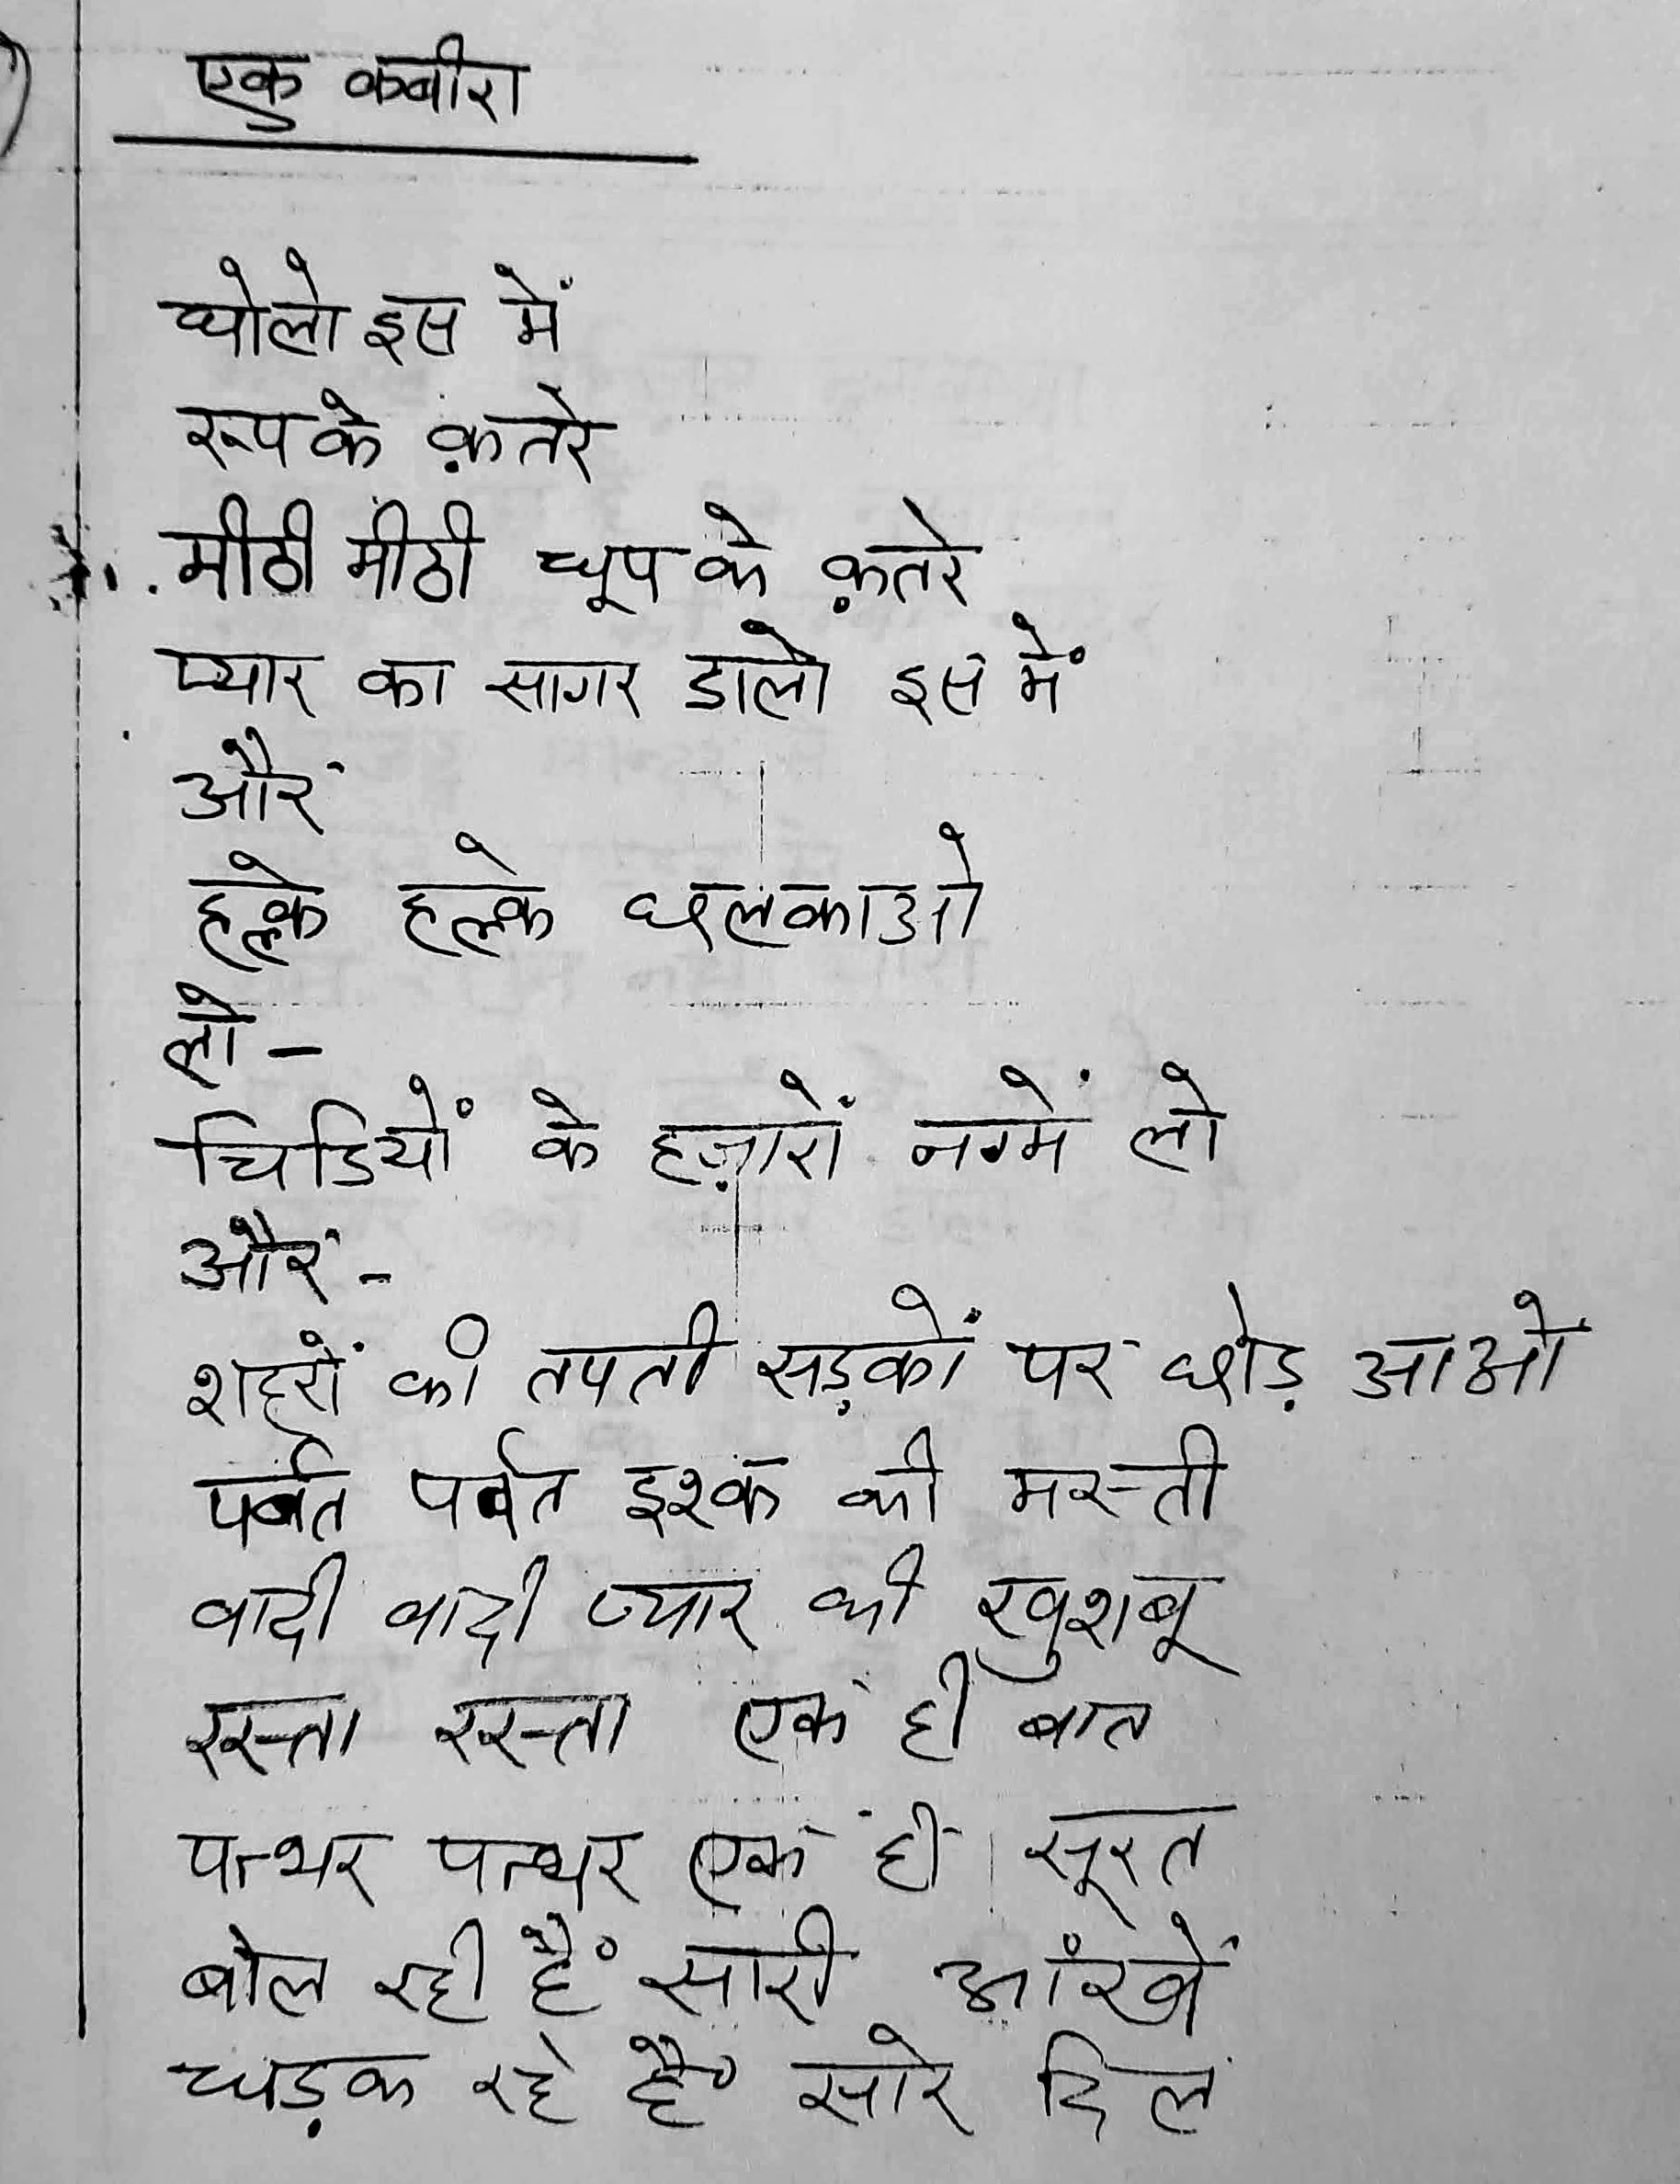 एक कबीरा
घोलो इस में
रूप के क़तरे
मीठी मीठी धूप के क़तरे
प्यार का सागर डालो इस में
और
हल्के हल्के छलकाओ
लो –
चिडियों के हज़ारों नग्में लो
और -
शहरों की तपती सड़कों पर छोड़ आओ
पर्वत पर्वत इश्क की मस्ती
वादी वादी प्यार की खुशबू
रस्ता रस्ता एक ही बात
पत्थर पत्थर एक ही सूरत
बोल रही हैं सारी आंखें
धड़क रहे हैं सारे दिल